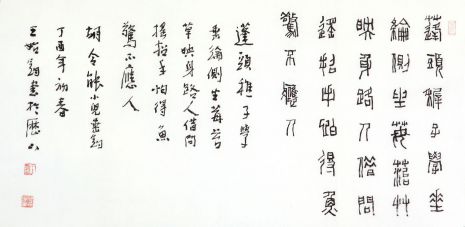 蓬頭稚子學垂
綸側坐莓苔艸
映身路人借問
遙招手怕得魚
驚不應人
蓬頭稚子學
垂綸側坐莓苔
草映身路人借問
遙招手怕得魚
驚不應人
胡令能小兒垂釣
丁酉年初春
王書於歷下